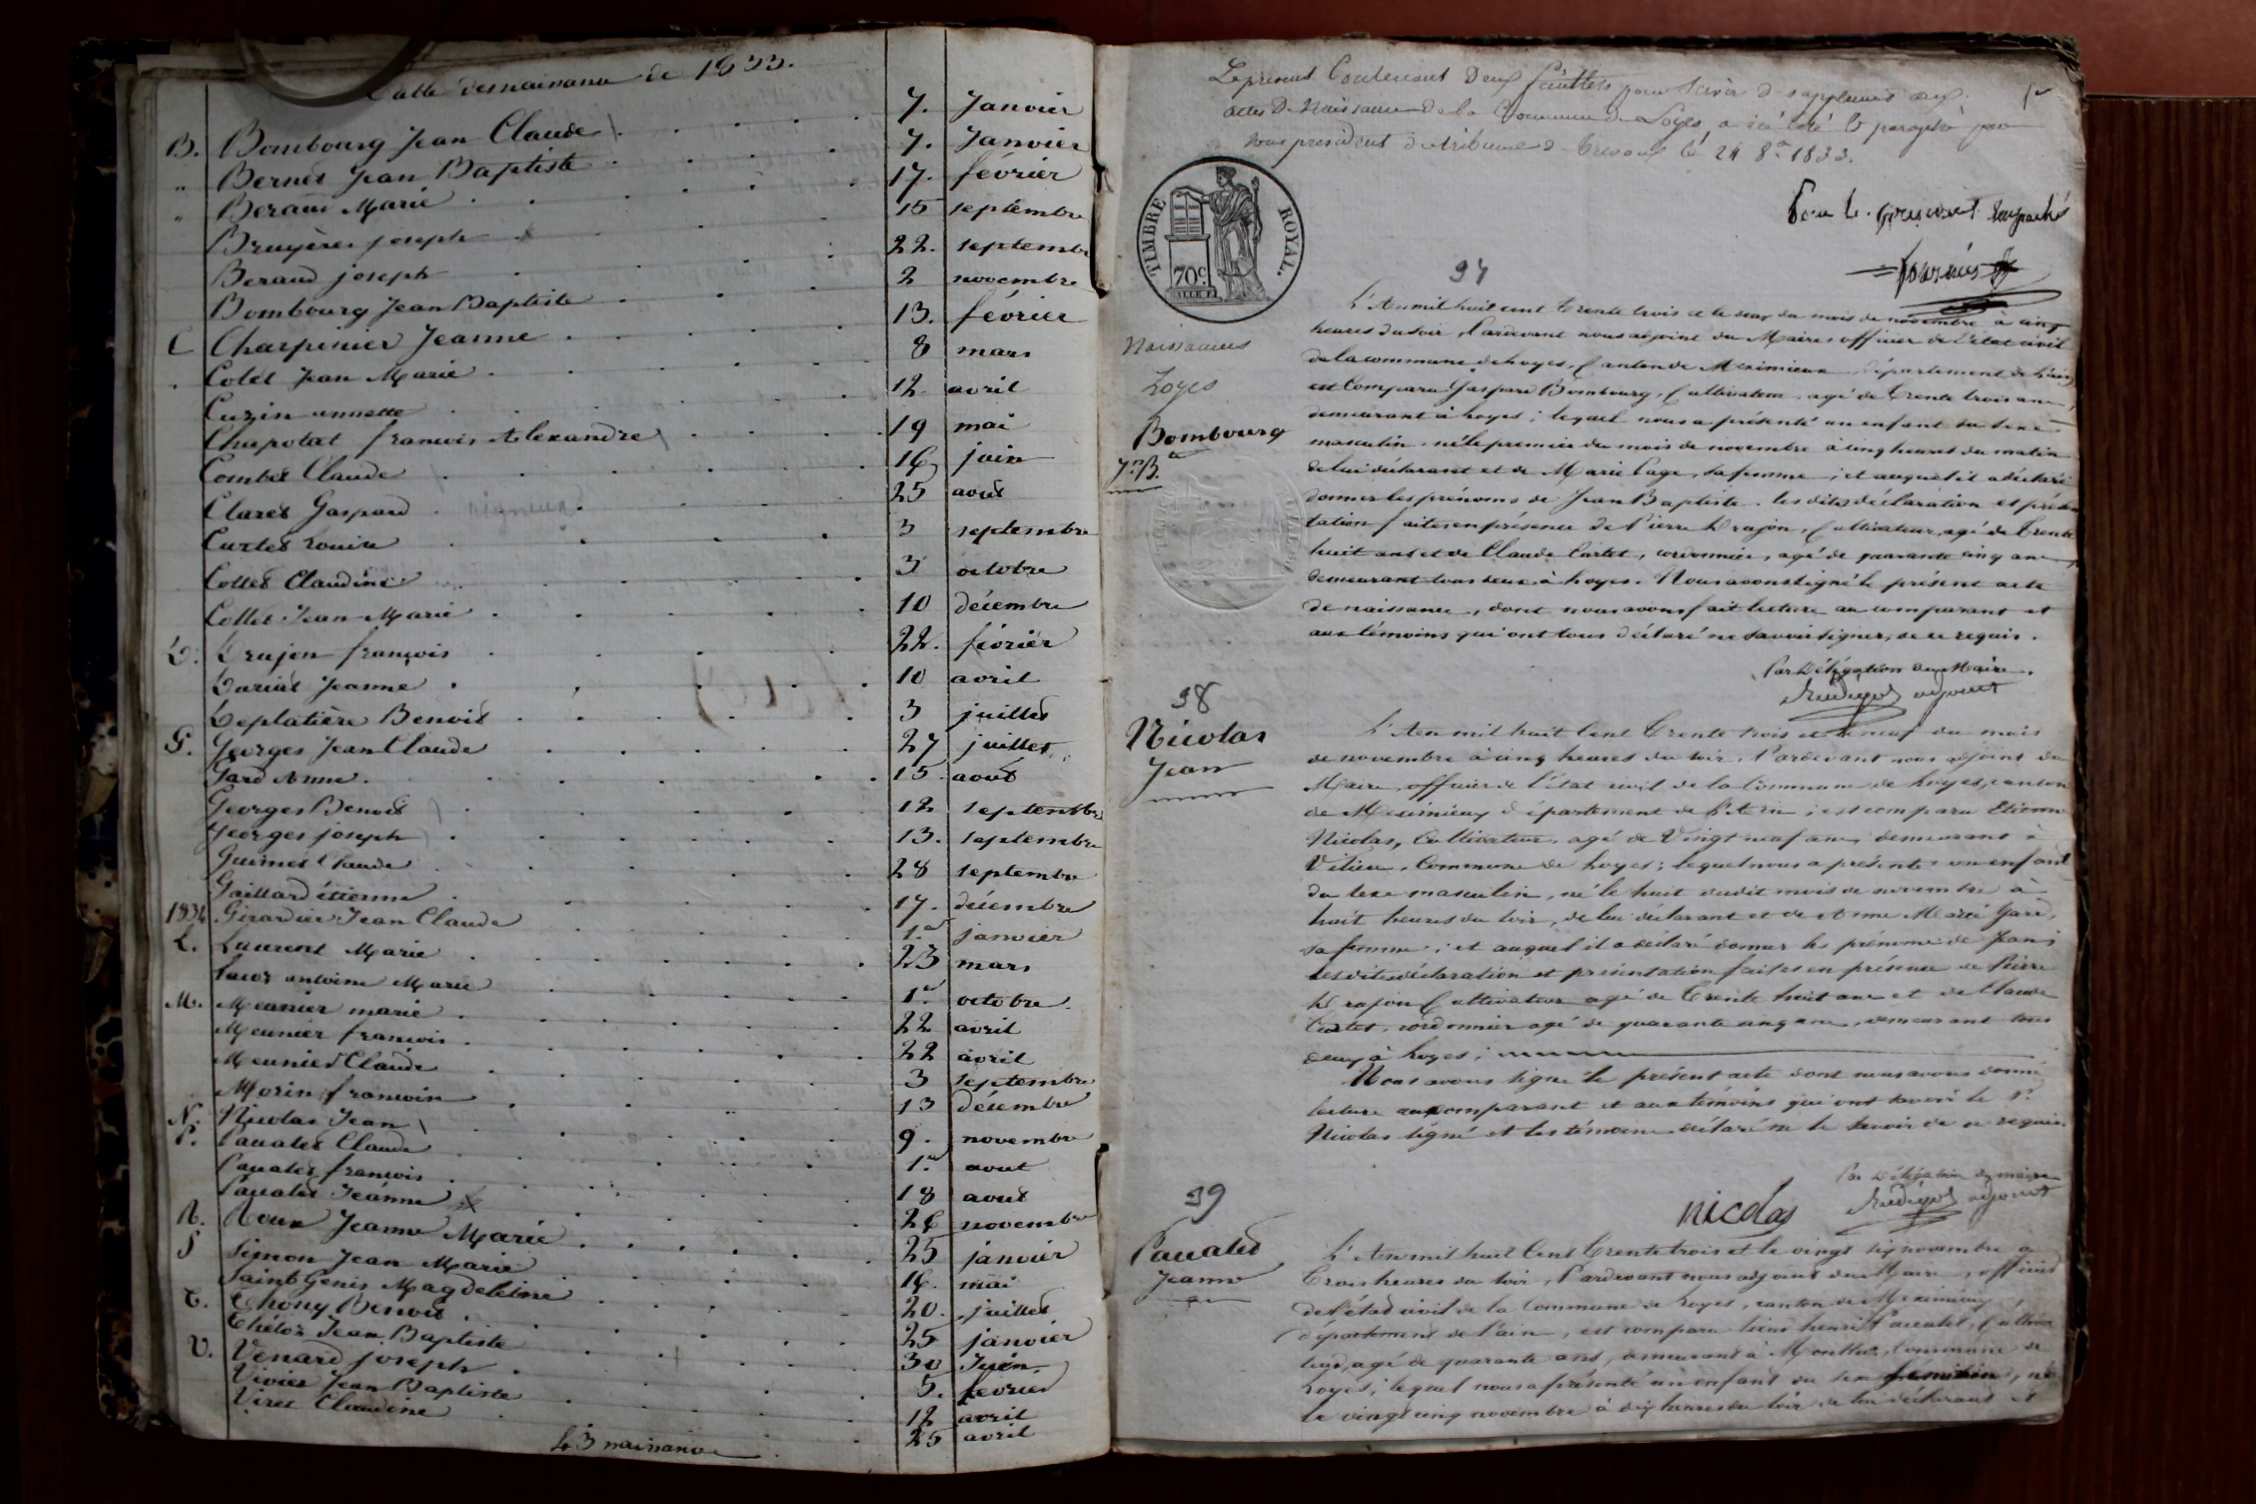 Table de naissance de 1833.
B. Bombourg Jean Claude 7. Janvier
" Bernet Jean Baptiste 7. Janvier
" Beraud Marie 17. février
Bruyères joseph 15 septembre
Beraud joseph 22. septembre
Bombourg Jean Baptiste 2 novembre
C Charpinier Jeanne 13. février
Colet Jean Marie 8 mars
Cuzin annette 12 avril
Chapotat francois Alexandre 19 mai
Combet Claude 16 juin
Claret Gaspard 25 aout
Curtet Louise 3 septembre
Collet Claudine 3 octobre
Collet Jean Marie 10 décembre
D. Drajon françois 22. février
Duriat Jeanne 10 avril
Deplatière Benoit 3 juillet
G. Georges Jean Claude 27 juillet
Gard Anne 15 aout
Georges Benoit 12 septembre
Georges joseph 13. septembre
Guimet Claude 28 septembre
Gaillard étienne 17. décembre
1834 Girardier Jean Claude 1er janvier
L. Laurent Marie 23 mars
antoine Marie 1er octobre
M. Meunier marie 22 avril
Meunier francois 22 avril
Meunier Claude 3 septembre
Morin francois 13 décembre
N. Nicolas Jean 9. novembre
P. Paualet Claude 1er aout
Paualet francois 18 aout
Paualet Jeanne 26 novembre
R. Roux Jeanne Marie 25 janvier
S Simon Jean Marie 16. mai
Saint Genis Magdeleine 20. juillet
T. Thony Benoit 25 janvier
Jean Baptiste 30 Juin
V. Venard joseph 5. fevrier
Vivier Jean Baptiste 12 avril
Viret Claudine 25 avril
43 naissance
Le present Contenant Deux feuillets pour servir de supplement aux
actes De Naissance de la Commune de Loyes, a été coté & paraphé par
nous president du tribunal de Trevoux le 24 8bre 1833.
Pour le president empeché
TIMBRE ROYAL.
70c.
Naissances
Loyes
37
Bombourg
Jn B.te
L'An mil huit cent trente trois et le deux du mois de novembre à cinq
heures du soir, Pardevant nous adjoint du Maire officier de l'état civil
de la commune de Loyes, Canton de Meximieux, département de l'ain,
est Comparu Gaspard Bombourg, Cultivateur, agé de trente trois ans,
demeurant à Loyes; lequel nous a présenté un enfant du sexe
masculin né le premier du mois de novembre à cinq heures du matin
de lui déclarant et de Marie Page, sa femme; et auquel il a déclaré
donner les prénoms de Jean Baptiste. les dites déclaration et présen
tation faites en présence de Pierre Drajon, Cultivateur, agé de trente
huit ans et de Claude Curtet, cordonnier, agé de quarante cinq ans,
demeurant tous deux à Loyes. Nous avons signé le présent acte
de naissance, dont nous avons fait lecture au comparant et
aux témoins qui ont tous déclaré ne savoir signer, de ce requis.
Par Délégation du Maire.
adjoint
38
Nicolas
Jean
L'An mil huit Cent Trente trois et le neuf du mois
de novembre à cinq heures du soir, Pardevant nous adjoint du
Maire, officier de l'état civil de la Commune de Loyes, canton
de Meximieux département de l'Ain; est comparu Etienne
Nicolas, Cultivateur, agé de Vingt neuf ans, demeurant à
Vilieu, Commune de Loyes; lequel nous a présenté un enfant
du sexe masculin, né le huit dudit mois de novembre à
huit heures du soir, de lui déclarant et de Anne Marie Gard,
sa femme; et auquel il a déclaré donner les prénoms de Jean;
les dites déclaration et présentation faites en présence de Pierre
Drajon Cultivateur agé de Trente huit ans et de Claude
Curtet, cordonnier agé de quarante cinq ans, demeurant tous
deux à Loyes;
Nous avons signé le présent acte dont nous avons donné
lecture au comparant et aux témoins qui ont savoir le Sr.
Nicolas signé et les témoins déclaré ne le savoir de ce requis.
Par Délégation du maire
nicolas adjoint
39
Paualet
Jeanne
L'An mil huit Cent Trente trois et le vingt six novembre à
Trois heures du soir, Pardevant nous adjoint du Maire, officier
de l'état civil de la Commune de Loyes, canton de Meximieux,
département de l'ain, est comparu henri Paualet, Cultiva
teur, agé de quarante ans, demeurant à Monthoz, Commune de
Loyes; lequel nous a présenté un enfant du sexe féminin, né
le vingt cinq novembre à dix heures du soir de lui déclarant et